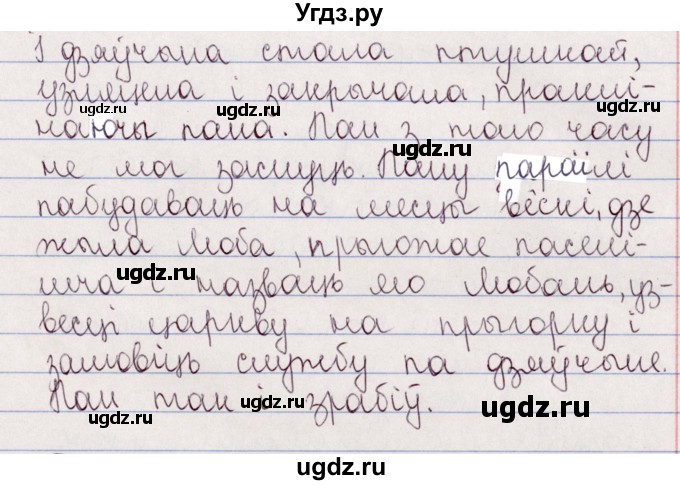 Угдз.ру
І дзяўчына стала птушкай,
узляцела і закрычала, праклі-
наючы пана. Пан з таго часу
не мог заснуць. Пану параілі
пабудаваць на месцы вёскі, дзе
жыла Люба, прыгожае паселі-
шча і назваць яго Любань, уз-
весці царкву на прыгорку і
замовіць службу па дзяўчыне.
Пан так і зрабіў.
ugdz.ru
ugdz.ru
ugdz.ru
ugdz.ru
ugdz.ru
ugdz.ru
ugdz.ru
ugdz.ru
ugdz.ru